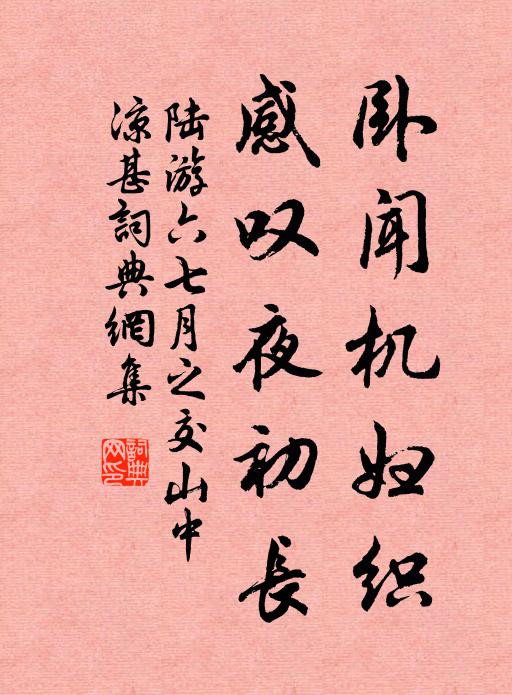 卧闻机妇织
感叹夜初長
陆游六七月之交山中
凉甚詞典網集
詞典
网印